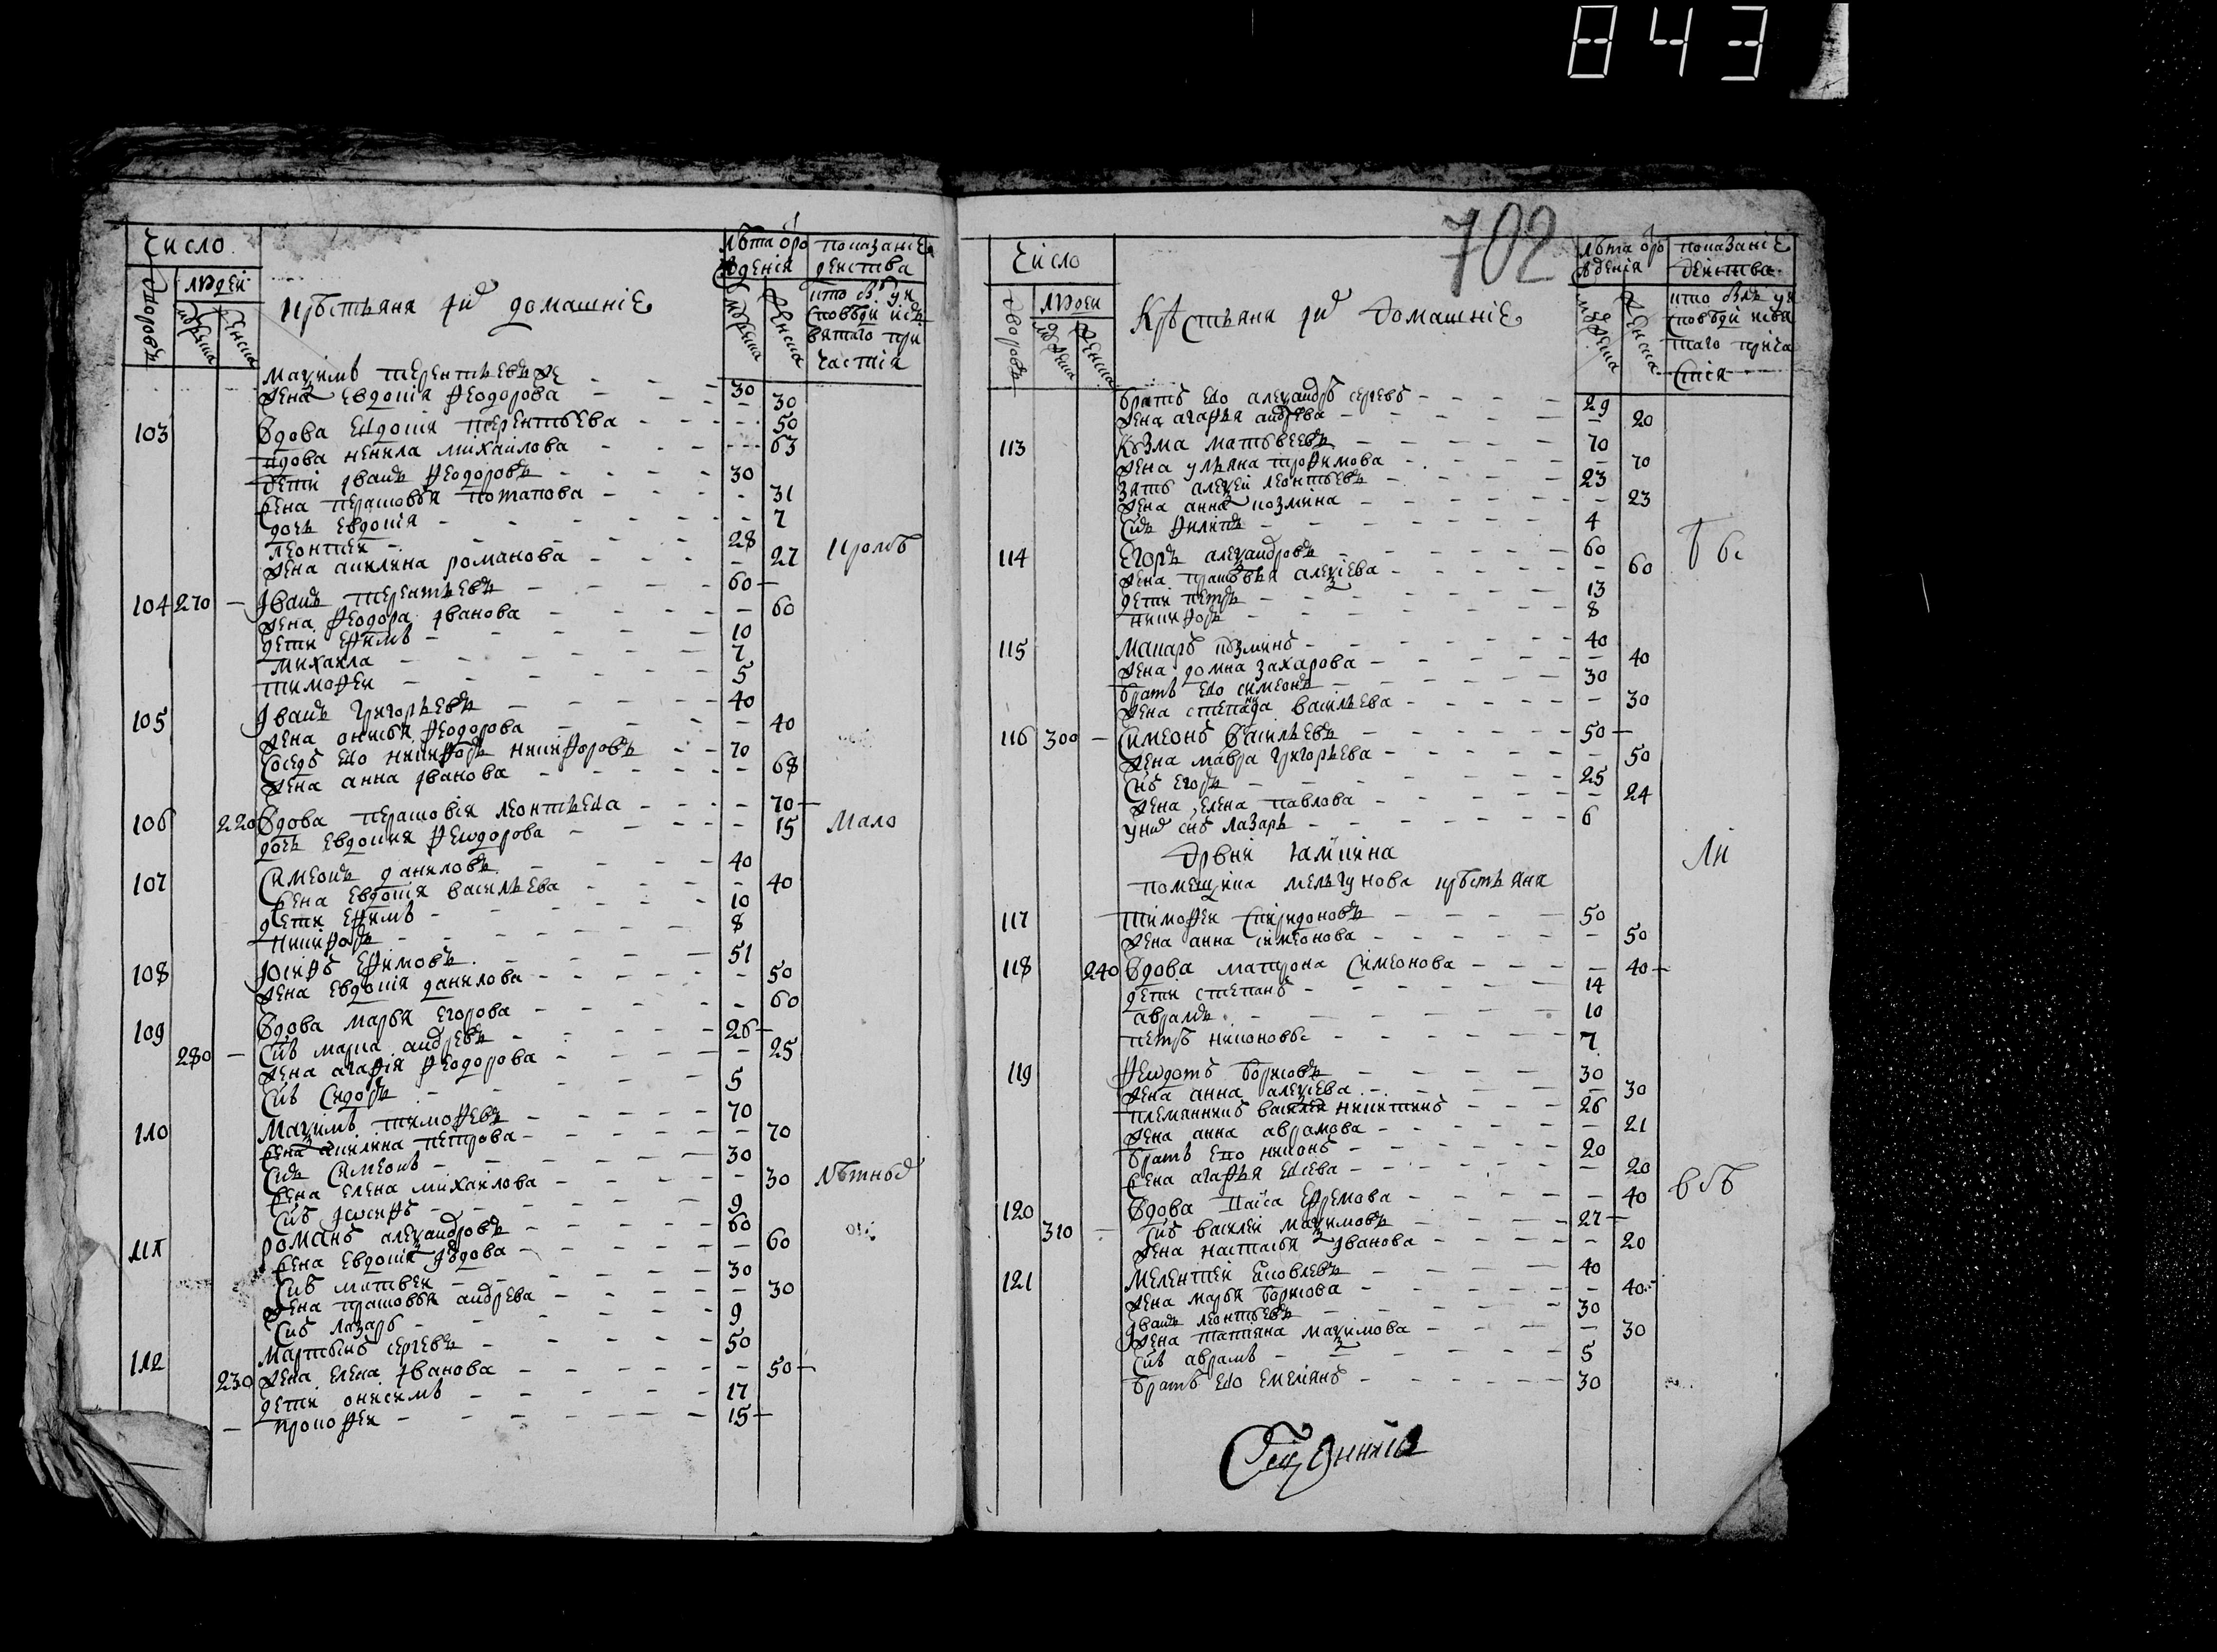 843
702
число
дворовъ
людей
мужеска
женска
крѣстьяня и домашние
лѣта о рождения
мужеска
женска
показание действа
кто был у исповѣди и святаго причастия
максимъ терентьевъ 30
жена евдокия феодорова - 30
103 вдова евдокия терентьева - 50
вдова ненила михаилова - 63
дети иванъ феодоровъ 30
жена парасковья потапова - 31
дочь евдокия - 7
леонтей - 28
жена акилина романова - 27 кромѣ
104 270 - иванъ терентьевъ - 60
жена феодора иванова - 60
дети ефимъ - 10
михаила - 7
тимофей - 5
105 иванъ григорьевъ - 40
жена анисья феодорова - 40
соседъ ево никифоръ никифоровъ - 70
жена анна иванова - 68
106 220 вдова парасковия леонтьева - 70
дочь евдокия феодорова - 15 мало
107 симеонъ даниловъ - 40
жена евдокия васильева - 40
дети ефимъ - 10
никифоръ - 8
108 иосифъ ефимовъ - 51
жена евдокия данилова - 50
109 вдова марья егорова - 60
280 - сынъ марка андревъ - 26
жена агафия феодорова - 25
сынъ сидоръ - 5
110 максимъ тимофевъ - 70
жена акилина петрова - 70
сынъ симеонъ - 30
жена елена михаилова - 30 лѣтныхъ
сынъ иосифъ - 9
111 романъ александровъ - 60
жена евдокия - 60
сынъ матвей - 30
жена прасковья андрева - 30
сынъ лазарь - 9
112 мартынъ сергевъ - 50
230 жена елена иванова - 50
дети онисимъ - 17
- прокофей - 15
число
дворовъ
людеи
мужеска
женска
Крѣстьяня и домашние
лѣта о рождения
мужеска
женска
показание действа
кто былъ у исповѣди и святаго причастия
братъ ево александръ сергевъ - 29
жена агафья андрева - 20
113 Кузма матвеевъ - 70
жена ульяна трофимова - 70
зять алексей леонтьевъ - 23
жена анна козмина - 23
сынъ филипъ - 4
114 егоръ александровъ - 60
жена прасковья алексиева - 60
дети петръ - 13
никифоръ - 8
115 макаръ козминъ - 40
жена домна захарова - 40
братъ ево симеонъ - 30
жена степанида васильева - 30
116 300 - симеонъ васильевъ - 50
жена мавра григорьева - 50
сынъ егоръ - 25
жена елена павлова - 24
у них сынъ лазарь - 6
помещика мельгунова крѣстьяня
ли
117 тимофей спиридоновъ - 50
жена анна симеонова - 50
118 240 вдова матрона симеонова - 40
дети степанъ - 14
аврамъ - 10
петръ никоновы - 7
119 феодотъ борисовъ - 30
жена анна алексиева - 30
племянникъ василей никитинъ - 26
жена анна аврамова - 21
братъ ево никонъ - 20
жена агафья - 20
120 вдова ефремова - 40
310 - сынъ василей максимовъ - 27
жена настасья иванова - 20
121 мелентей яковлевъ - 40
жена марья борисова - 40
иванъ леонтьевъ - 30
жена татияна максимова - 30
сынъ аврамъ - 5
братъ ево емелянъ - 30